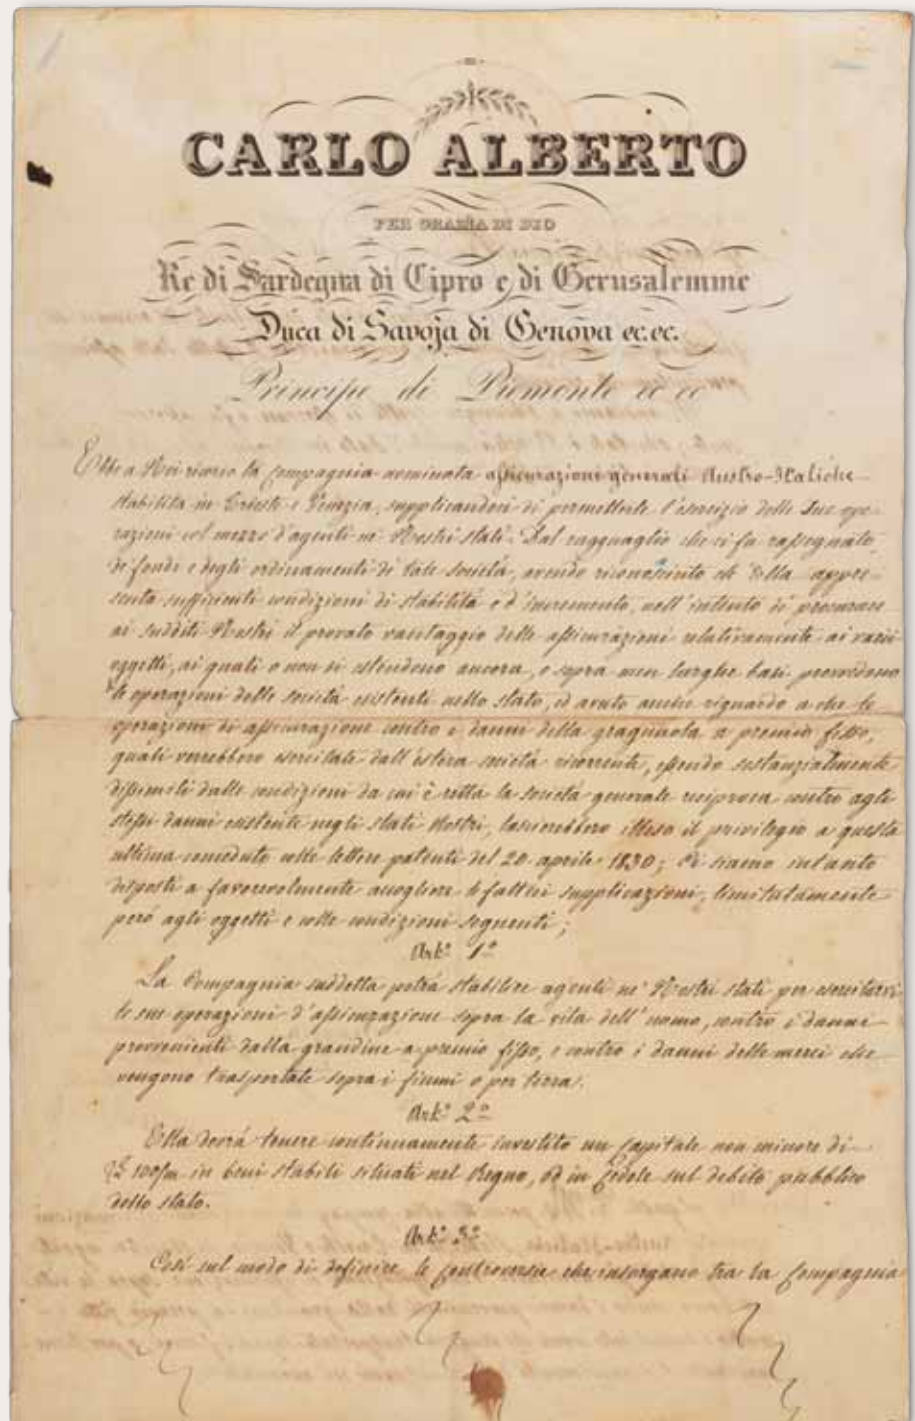 CARLO ALBERTO
PER GRAZIA DI DIO
Re di Sardegna di Cipro e di Gerusalemme
Duca di Savoja di Genova ec. ec.
Principe di Piemonte ec ec
Ebbe a Noi ricorso la Compagnia nominata assicurazioni generali Austro-Italiche
stabilita in Trieste e Venezia, supplicandoci di permetterle l'esercizio delle Sue ope-
razioni col mezzo d'agenti ne' Nostri stati. Dal ragguaglio che ci fu rassegnato
de' fondi e degli ordinamenti di tale società, avendo riconosciuto ch'Ella appre-
senta sufficienti condizioni di stabilità e d'incremento, nell'intento di procurare
ai sudditi Nostri il provato vantaggio delle assicurazioni relativamente ai varii
oggetti, ai quali o non si estendono ancora, o sopra men larghe basi provvedono
le operazioni delle società esistenti nello stato, ed avuto anche riguardo a che le
operazioni di assicurazione contro i danni della gragnuola a premio fisso,
quali verrebbero esercitate dall'estera società ricorrente, essendo sostanzialmente
dissimili dalle condizioni da cui è retta la società generale reciproca contro agli
stessi danni esistente negli stati Nostri, lascierebbero illeso il privilegio a questa
ultima conceduto colle lettere patenti del 20 aprile 1830; Ci siamo intanto
disposti a favorevolmente accogliere le fatteci supplicazioni, limitatamente
però agli oggetti e colle condizioni seguenti;
Art.° 1°
La Compagnia suddetta potrà stabilire agenti ne' Nostri stati per esercitarvi
le sue operazioni d'assicurazione sopra la vita dell'uomo, contro i danni
provvenienti dalla grandine a premio fisso, e contro i danni delle merci che
vengono trasportate sopra i fiumi o per terra.
Art.° 2°
Ella dovrà tenere continuamente investito un capitale non minore di
100/m in beni stabili situati nel Regno, od in Cedole sul debito pubblico
dello stato.
Art.° 3°
Così sul modo di definire le controversie che insorgano tra la Compagnia